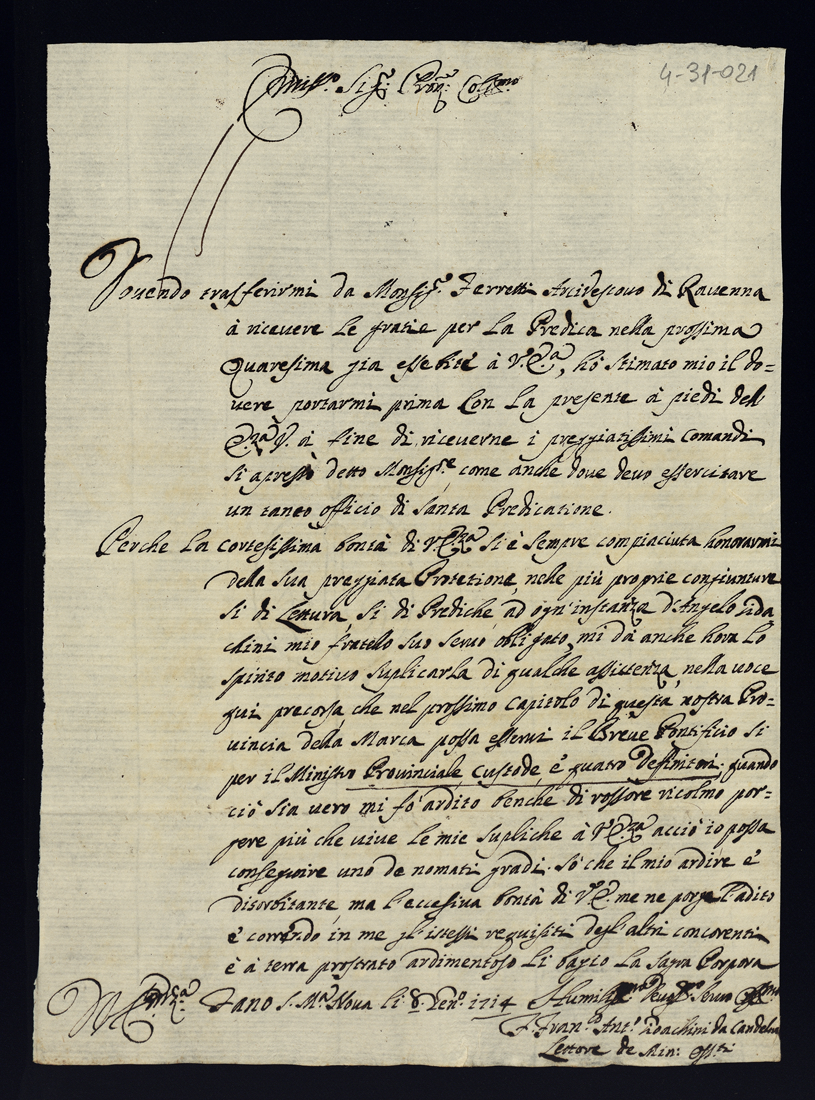 4-31-021
Emin.mo Sig.re Pron.e Col.mo
Dovendo trasferirmi da Monsig.re Ferretti Arcivescovo di Ravenna
à ricevere le gratie per la Predica nella prossima
Quaresima già essebite à V.Em.a, hò stimato mio il do=
vere portarmi prima con la presente à piedi dell
Em.za V. à fine di riceverne i preggiatissimi comandi
si apresso detto Monsig.re come anche dove devo essercitare
un tanto officio di Santa Predicatione.
Perche la cortesissima bontà di V.Em.za si è sempre compiaciuta honorarmi
della sua preggiata Protetione nelle più proprie congiunture
si di Lettura, si di Prediche ad ogn'instanza d'Angelo Gioa
chini mio fratello suo servo obligato, mi dà anche hora lo
spirito motivo suplicarla di qualche assistenza, nella voce
qui precorsa, che nel prossimo Capitolo di questa nostra Pro=
vincia della Marca possa esservi il Breve Pontificio si
per il Ministro Provinciale, Custode, è quatro Deffinitori. quando
ciò sia vero mi fò ardito benche di rossore ricolmo por=
gere più che vive le mie supliche à V.Em.za acciò io possa
conseguire uno de nomati gradi. Sò che il mio ardire è
disorbitante, ma l'eccesiva bontà di V.Em. me ne porge l'adito
è correndo in me gl'istessi requisiti degl'altri concorenti
è à terra prostrato ardimentoso li bagio la Sagra Porpora
Di V. Em.za Fano S. M.a Nova li 8. Gen.o 1714 Humiliss.mo Devot.mo Servo
F. Fran.co Ant.o Gioachini da Candel
Lettore de Min: Oss.ti